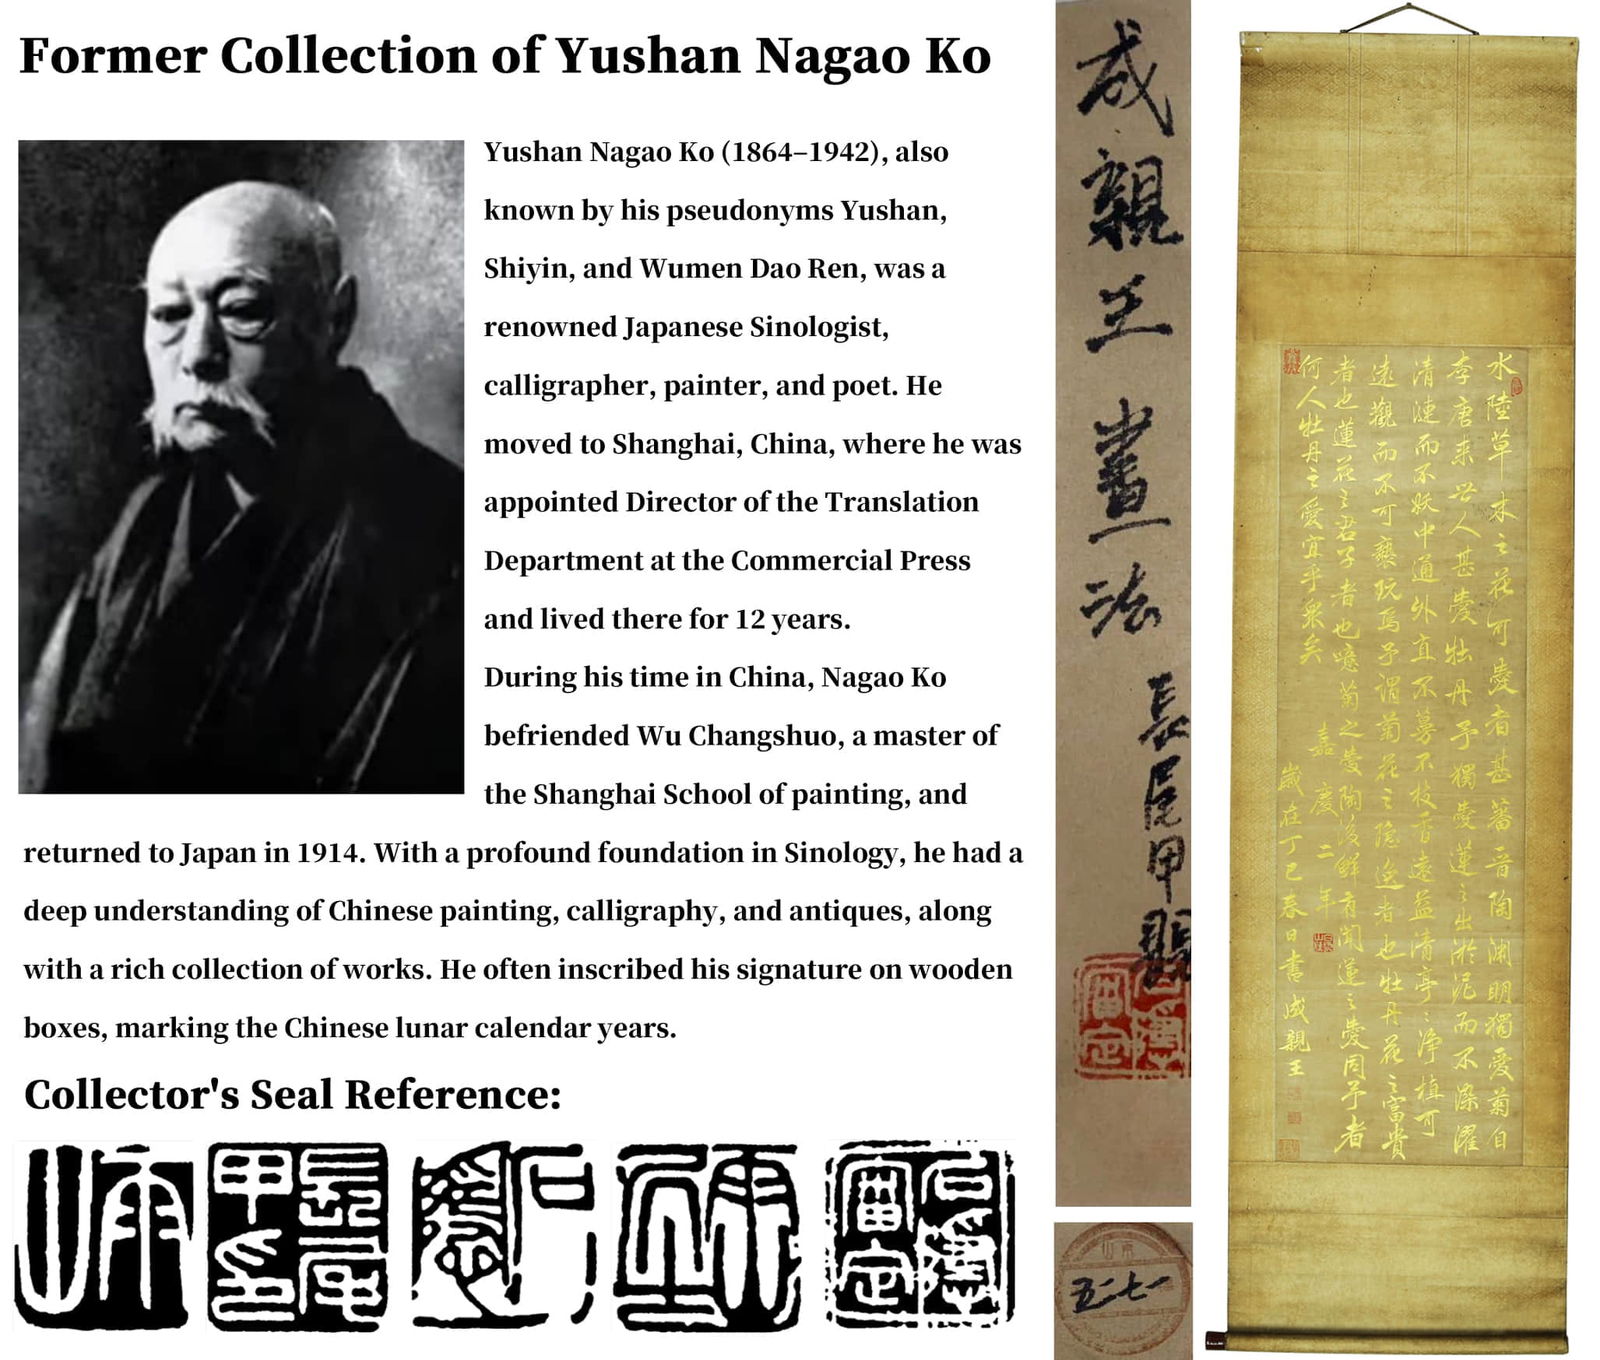 Former Collection of Yushan Nagao Ko
Yushan Nagao Ko (1864–1942), also
known by his pseudonyms Yushan,
Shiyin, and Wumen Dao Ren, was a
renowned Japanese Sinologist,
calligrapher, painter, and poet. He
moved to Shanghai, China, where he was
appointed Director of the Translation
Department at the Commercial Press
and lived there for 12 years.
During his time in China, Nagao Ko
befriended Wu Changshuo, a master of
the Shanghai School of painting, and
returned to Japan in 1914. With a profound foundation in Sinology, he had a
deep understanding of Chinese painting, calligraphy, and antiques, along
with a rich collection of works. He often inscribed his signature on wooden
boxes, marking the Chinese lunar calendar years.
Collector's Seal Reference:
長尾甲印
成親王畫法
長尾甲
水陸草木之花可愛者甚蕃晉陶淵明獨愛菊自
李唐來世人甚愛牡丹予獨愛蓮之出淤泥而不染濯
清漣而不妖中通外直不蔓不枝香遠益清亭〻淨植可
遠觀而不可褻玩焉予謂菊花之隱逸者也牡丹花之富貴
者也蓮花之君子者也噫菊之愛陶後鮮有聞蓮之愛同予者
何人牡丹之愛宜乎眾矣
嘉慶二年
歲在丁巳春日書成親王